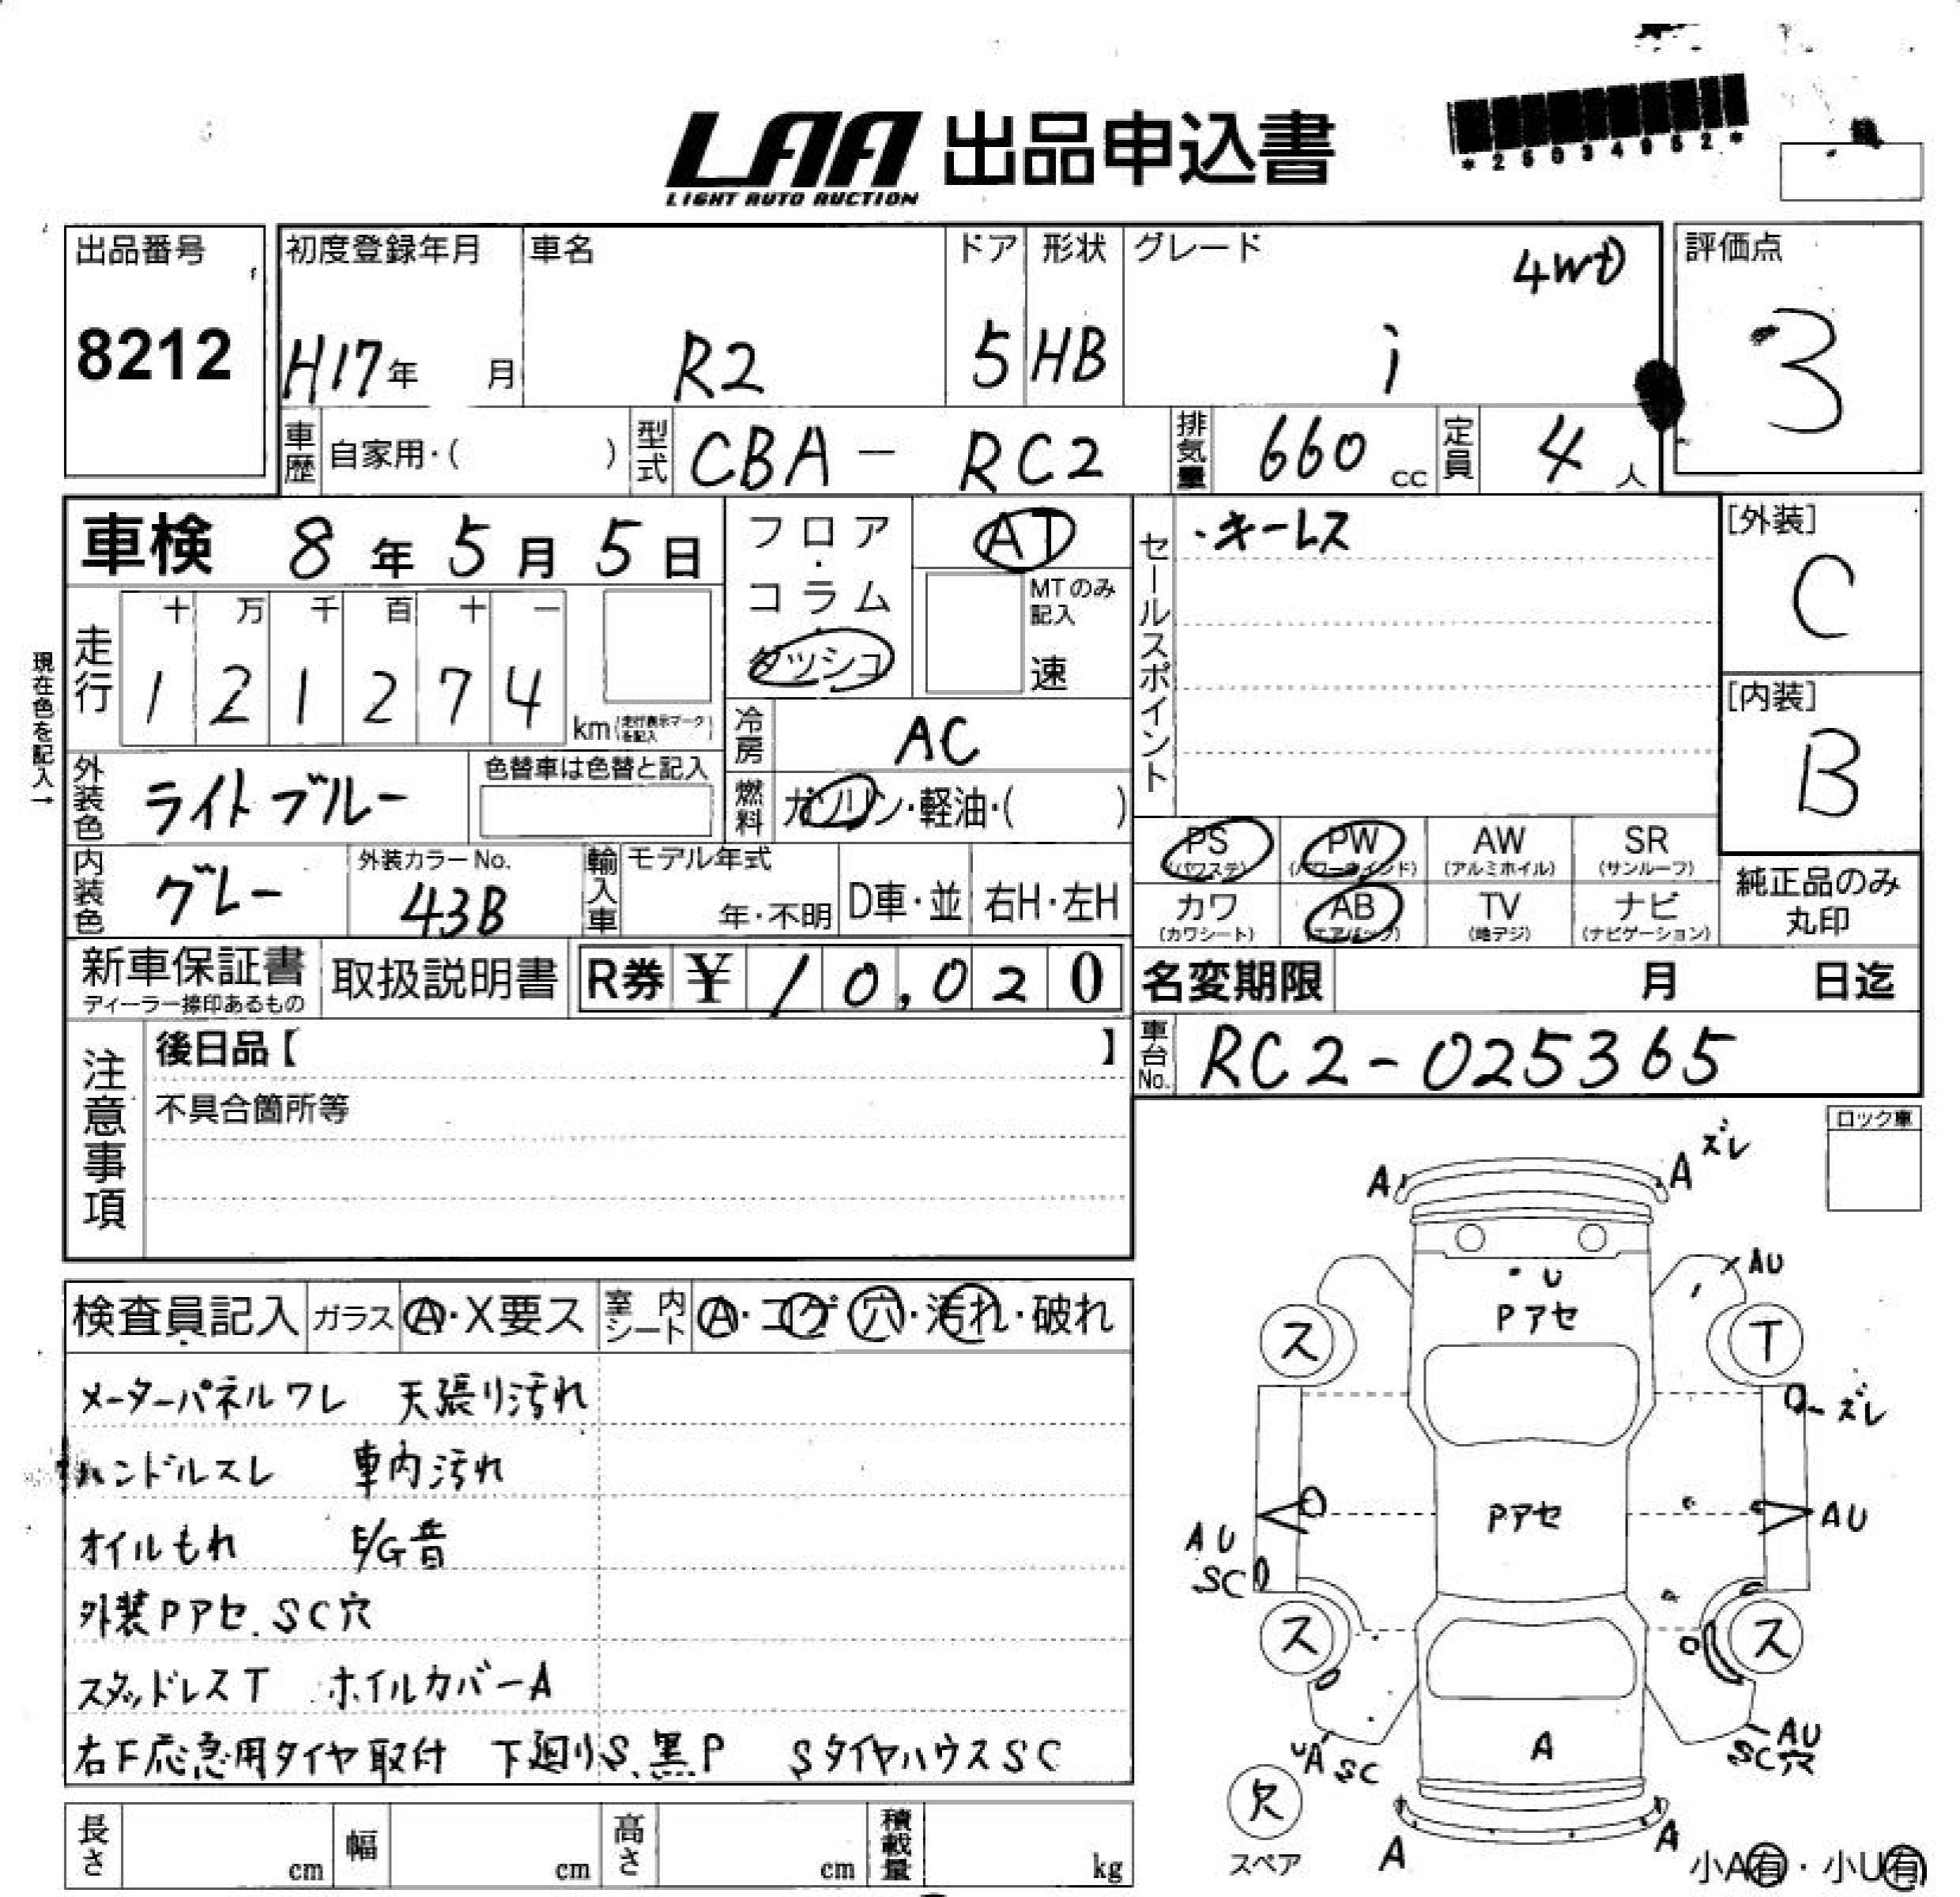 LAA 出品申込書
LIGHT AUTO AUCTION
*25034052*
出品番号 初度登録年月 車名 ドア 形状 グレード 4WD 評価点
8212 H17年 月 R2 5 HB i 3
車歴 自家用・( ) 型式 CBA - RC2 排気量 660 cc 定員 4 人
車検 8年 5月 5日 フロア・コラム・ダッシュ AT セールスポイント ・キーレス [外装] C
MTのみ記入 速
走行 十 万 千 百 十 一
1 2 1 2 7 4 km (走行表示マークを記入)
現在色を記入→
冷房 AC [内装] B
外装色 ライトブルー 色替車は色替と記入 燃料 ガソリン・軽油・( )
PS (パワステ) PW (パワーウインド) AW (アルミホイル) SR (サンルーフ)
内装色 グレー 外装カラーNo. 43B 輸入車 モデル年式 年・不明 D車・並 右H・左H
カワ (カワシート) AB (エアバック) TV (地デジ) ナビ (ナビゲーション) 純正品のみ丸印
新車保証書 ディーラー捺印あるもの 取扱説明書 R券 ¥ 10,020 名変期限 月 日迄
車台No. RC2-025365
注意事項 後日品【 】
不具合箇所等
ロック車
A A ズレ
U AU
Pアセ
ス T
ズレ
検査員記入 ガラス A・X要ス 室内シート A・コゲ・穴・汚れ・破れ
メーターパネルワレ 天張り汚れ
ハンドルスレ 車内汚れ
オイルもれ E/G音
外装Pアセ、SC穴
スタッドレスT ホイルカバーA
右F応急用タイヤ取付 下廻りS、黒P SタイヤハウスSC
Pアセ
AU SC AU
ス ス
UA SC A AU SC穴
欠 スペア
A A
小A有・小U有
長さ cm 幅 cm 高さ cm 積載量 kg